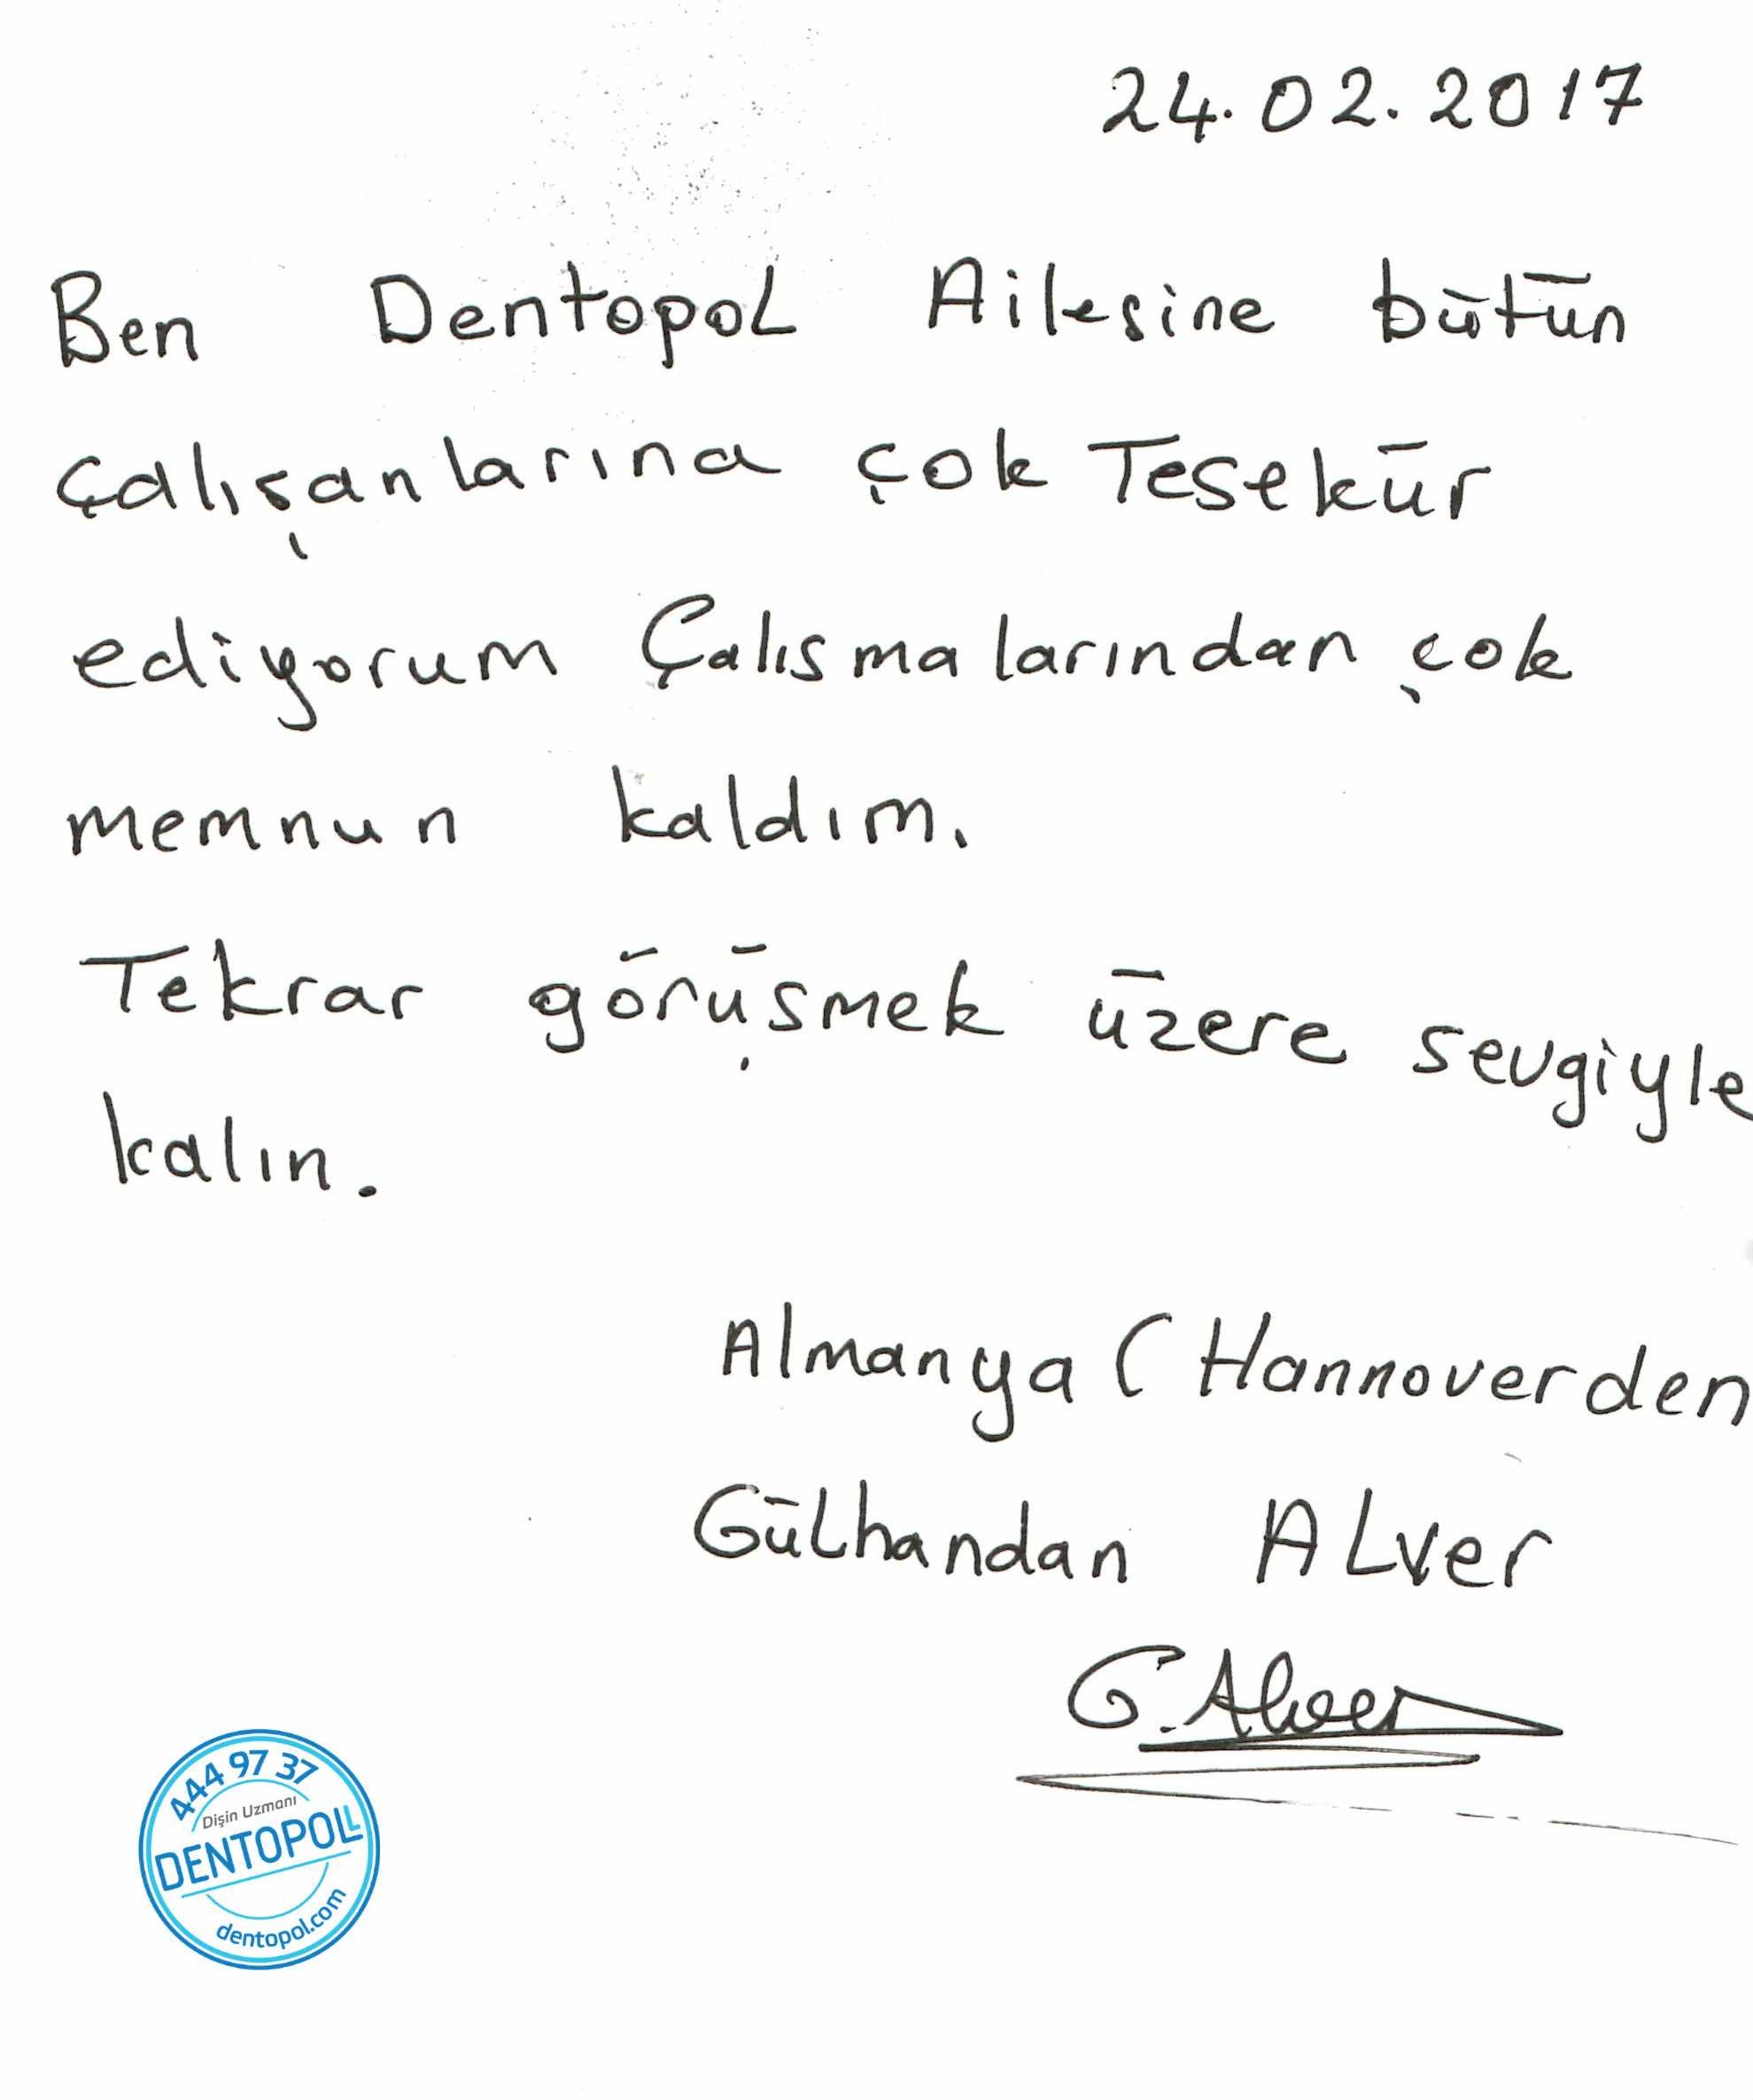 24.02.2017
Ben Dentopol Ailesine bütün
çalışanlarına çok Tesekür
ediyorum Çalısmalarından çok
memnun kaldım.
Tekrar görüşmek üzere sevgiyle
kalın.
Almanya (Hannoverden
Gülhandan ALver
G. Alver
444 97 37
Dişin Uzmanı
DENTOPOLL
dentopol.com